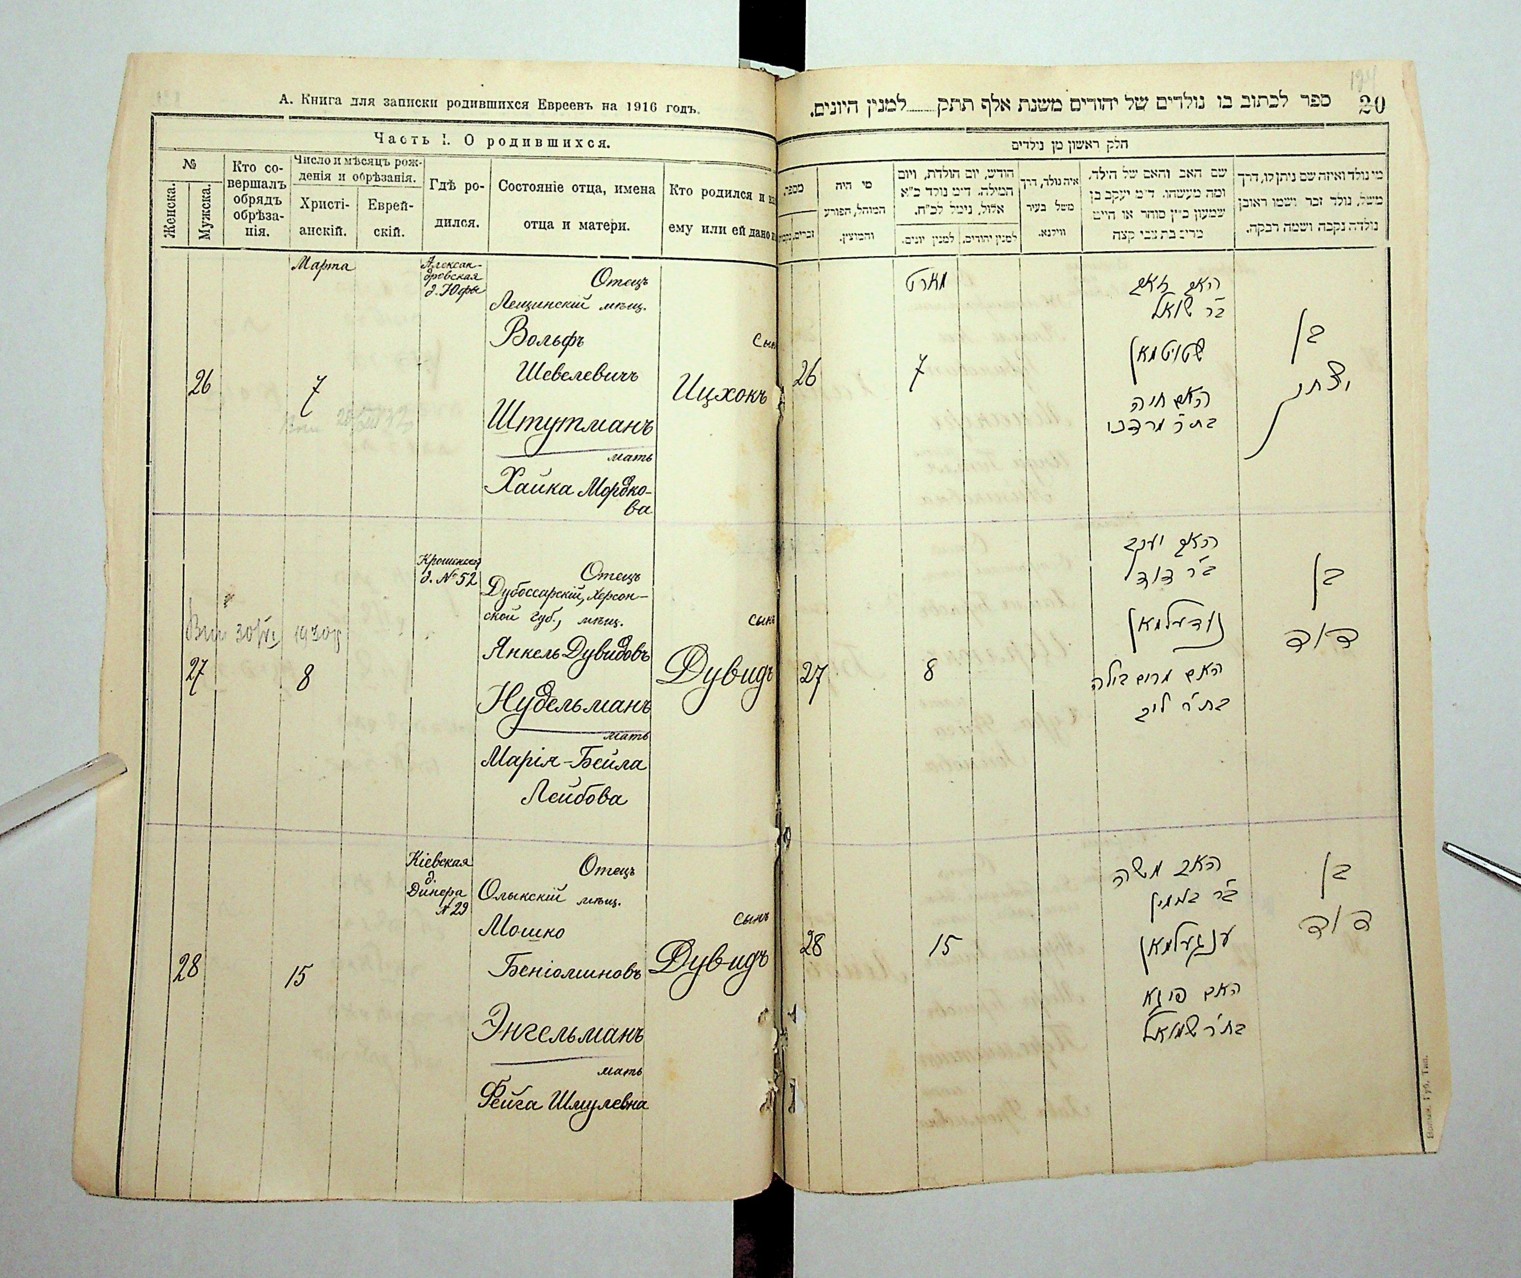 А. Книга для записки родившихся Евреевъ на 1916 годъ.
Часть I. О родившихся.
№
Женска.
Мужска.
Кто со-
вершалъ
обрядъ
обрѣза-
нія.
Число и мѣсяцъ рож-
денія и обрѣзанія.
Христі-
анскій.
Еврей-
скій.
Гдѣ ро-
дился.
Состояніе отца, имена
отца и матери.
Кто родился и
ему или ей дано
Марта
Алексан-
дровская
д. Юфы
26
7
Отецъ
Лещинскій мѣщ.
Вольфъ
Шевелевичъ
Штутманъ
мать
Хайка Мордко-
ва
Сынъ
Ицхокъ
д. № 52
27
8
Отецъ
Дубоссарскій, Херсон-
ской губ., мѣщ.
Янкель Дувидовъ
Нудельманъ
мать
Марія-Бейла
Лейбова
Сынъ
Дувидъ
Кіевская
д.
Динера
№ 29
28
15
Отецъ
Олыкскій мѣщ.
Мошко
Беніоминовъ
Энгельманъ
мать
Фейга Шмулевна
Сынъ
Дувидъ
20
ספר לכתוב בו נולדים של יהודים משנת אלף תתק למנין היונים.
חלק ראשון מן נולדים
מספר
זכרים
מי היה
המוהל, הפורע
והמוצץ.
חודש, יום הולדת, ויום
המילה. ד״מ נולד כ״א
אלול, נימל לכ״ח.
למנין יונים.
למנין יהודים.
איה נולד, דרך
משל בעיר
ווילנא.
שם האב והאם של הילד,
ומה מעשהו. ד״מ יעקב בן
שמעון כ״ץ סוחר או חייט
מרים בת צבי קצה
מי נולד ואיזה שם ניתן לו, דרך
משל, נולד זכר ושמו ראובן
נולדה נקבה ושמה רבקה.
מארט
26
7
האב זאב
ב״ר שואל
שטוטמאן
האם חיה
בת״ר מרדכי
בן
יצחק
27
8
האב יעקב
ב״ר דוד
נודעלמאן
האם מרים בילה
בת״ר ליב
בן
דוד
28
15
האב משה
ב״ר בנימין
ענגעלמאן
האם פיגא
בת״ר שמואל
בן
דוד